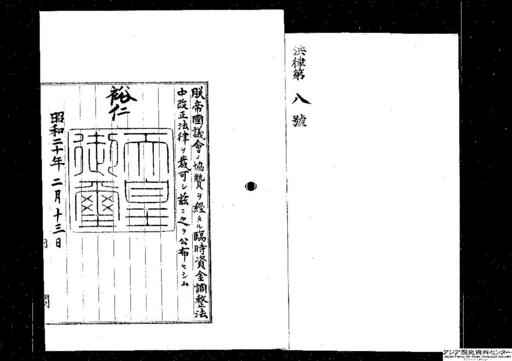 法律第八號
朕帝國議會ノ協贊ヲ經タル臨時資金調整法
中改正法律ヲ裁可シ茲ニ之ヲ公布セシム
裕仁
天皇
御璽
昭和二十年二月十三日
アジア歴史資料センター